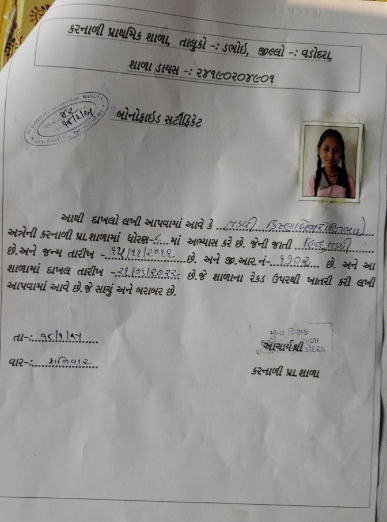 કરનાળી પ્રાથમિક શાળા, તાલુકો -: ડભોઇ, જીલ્લો -: વડોદરા,
શાળા ડાયસ -: ૨૪૧૯૦૨૦૪૯૦૧
બોનોફાઇડ સર્ટીફિકેટ
આથી દાખલો લખી આપવામાં આવે કે તડવી
અત્રેની કરનાળી પ્રા.શાળામાં ધોરણ-૮ માં અભ્યાસ કરે છે. જેની જાતી હિન્દુ તડવી
છે.અને જન્મ તારીખ - છે. અને જી.આર.નં- છે. અને આ
શાળામાં દાખલ તારીખ - છે.જે શાળાના રેકડ ઉપરથી ખાતરી કરી લખી
આપવામાં આવે છે.જે સાચું અને બરાબર છે.
તા-:
મુખ્ય શિક્ષક
આચાર્યશ્રી
વાર-: શનિવાર
કરનાળી પ્રા.શાળા